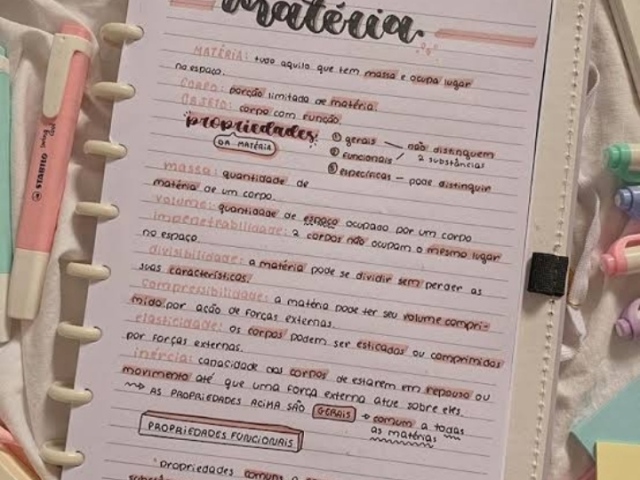 matéria
MATÉRIA: tudo aquilo que tem massa e ocupa lugar
no espaço.
CORPO: porção limitada de matéria.
OBJETO: corpo com função.
propriedades:
DA MATÉRIA
① gerais — não distinguem
② funcionais / 2 substâncias
③ específicas — pode distinguir
massa: quantidade de
matéria de um corpo.
volume: quantidade de espaço ocupado por um corpo
impenetrabilidade: 2 corpos não ocupam o mesmo lugar
no espaço.
divisibilidade: a matéria pode se dividir sem perder as
suas características.
compressibilidade: a matéria pode ter seu volume compri-
mido por ação de forças externas.
elasticidade: os corpos podem ser esticados ou comprimidos
por forças externas.
inércia: capacidade dos corpos de estarem em repouso ou
movimento até que uma força externa atue sobre eles.
AS PROPRIEDADES ACIMA SÃO GERAIS → comum a todas
as matérias
PROPRIEDADES FUNCIONAIS
propriedades comuns a
STABILO swing cool